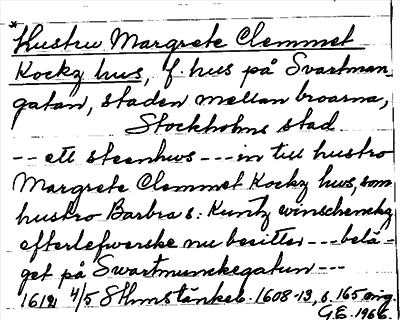 *Hustru Margrete Clemmet
Kockz hus, f. hus på Svartman-
gatan, staden mellan broarna,
Stockholms stad.
-- ett steenhws --- in till hustro
Margrete Clemmet Kockz hws, som
hustro Barbra s: Kuntz winschenckz
efterlefwerske nu besitter --- belä-
get på Swartmunckegatun ---
16/2 4/5 Sthms tänkeb. 1608-13, s. 165 orig.
G.E. 1966.